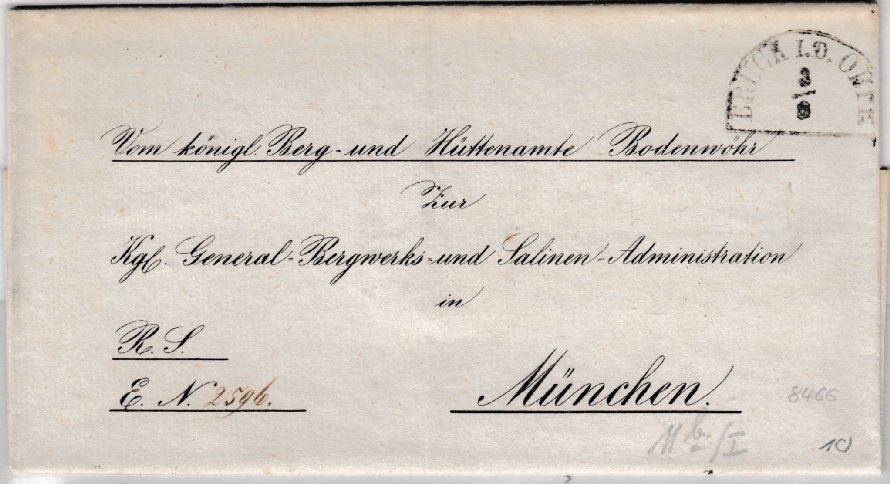 BRUCK I.O. OBTR
3/8
Vom königl. Berg- und Hüttenamte Bodenwöhr
Zur
Kgl. General-Bergwerks- und Salinen-Administration
in
R. S.
E. N. 2596.
München.
8466
11 b/I
10